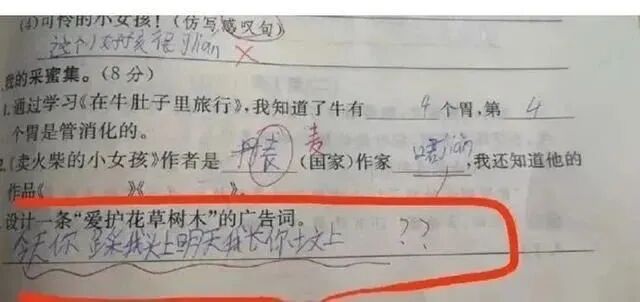 (4)可怜的小女孩!(仿写感叹句)
这个小女孩很jlian
我的采蜜集。(8分)
1.通过学习《在牛肚子里旅行》,我知道了牛有 4 个胃,第 4
个胃是管消化的。
2.《卖火柴的小女孩》作者是 丹裱 麦 (国家)作家 ,我还知道他的
作品《 》《 》。
设计一条“爱护花草树木”的广告词。
今天你踩我头上明天我长你坟上 ??